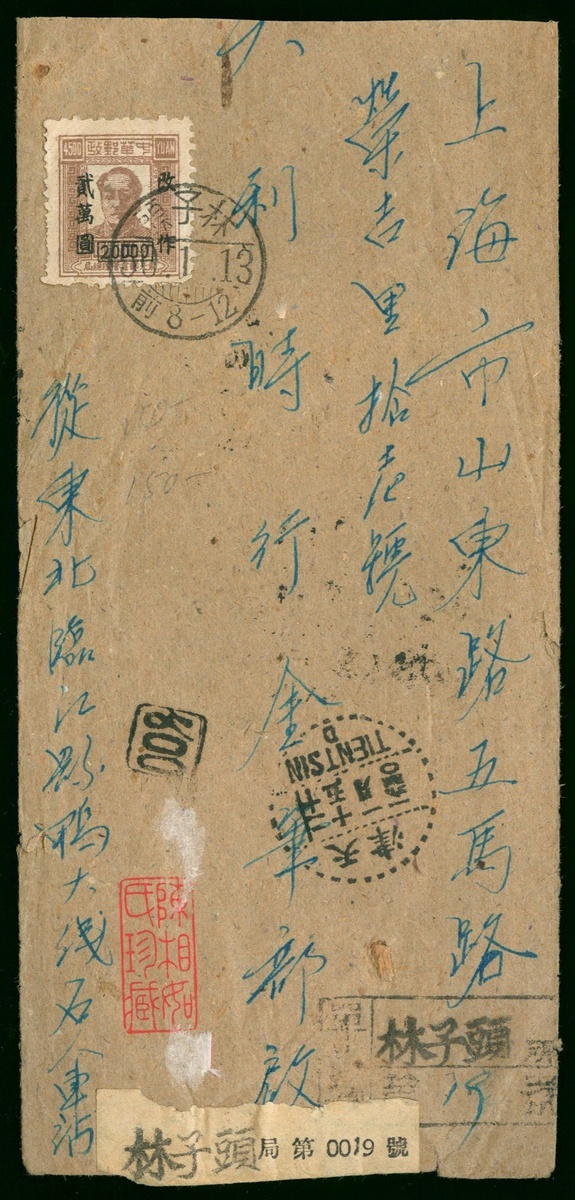 上海市山東路五馬路
榮吉里拾壱號
大利時行金筆部啟
從東北臨江縣鴨大綫石人車站
中華郵政
4500
YUAN
改作
貳萬圓
20000
林子
.1.13
前8-12
308
天津
十五
一月
TIENTSIN
D
陳相如
氏珍藏
林子頭
林子頭局第0019號